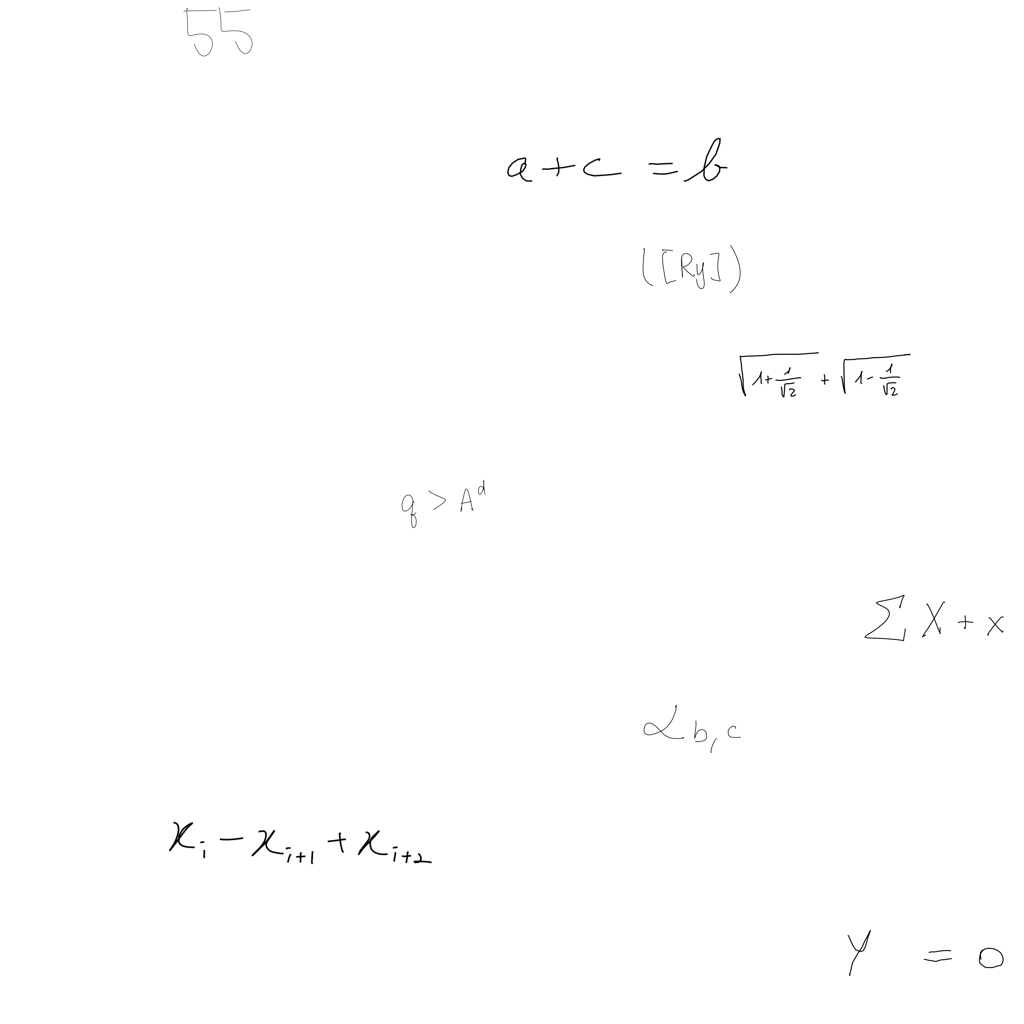 55
a + c = b
([Ry])
\sqrt{1+\frac{1}{\sqrt{2}}} + \sqrt{1-\frac{1}{\sqrt{2}}}
q > A^d
\sum X + x
\alpha_{b,c}
x_i - x_{i+1} + x_{i+2}
Y = 0